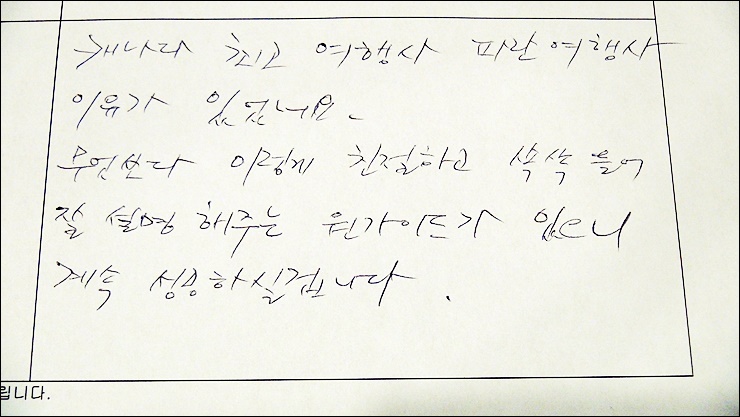 캐나다 최고 여행사 파란여행사
이유가 있었네요.
무엇보다 이렇게 친절하고 쏙쏙 들어
잘 설명해주는 원가이드가 있으니
계속 성공하실겁니다.
립니다.